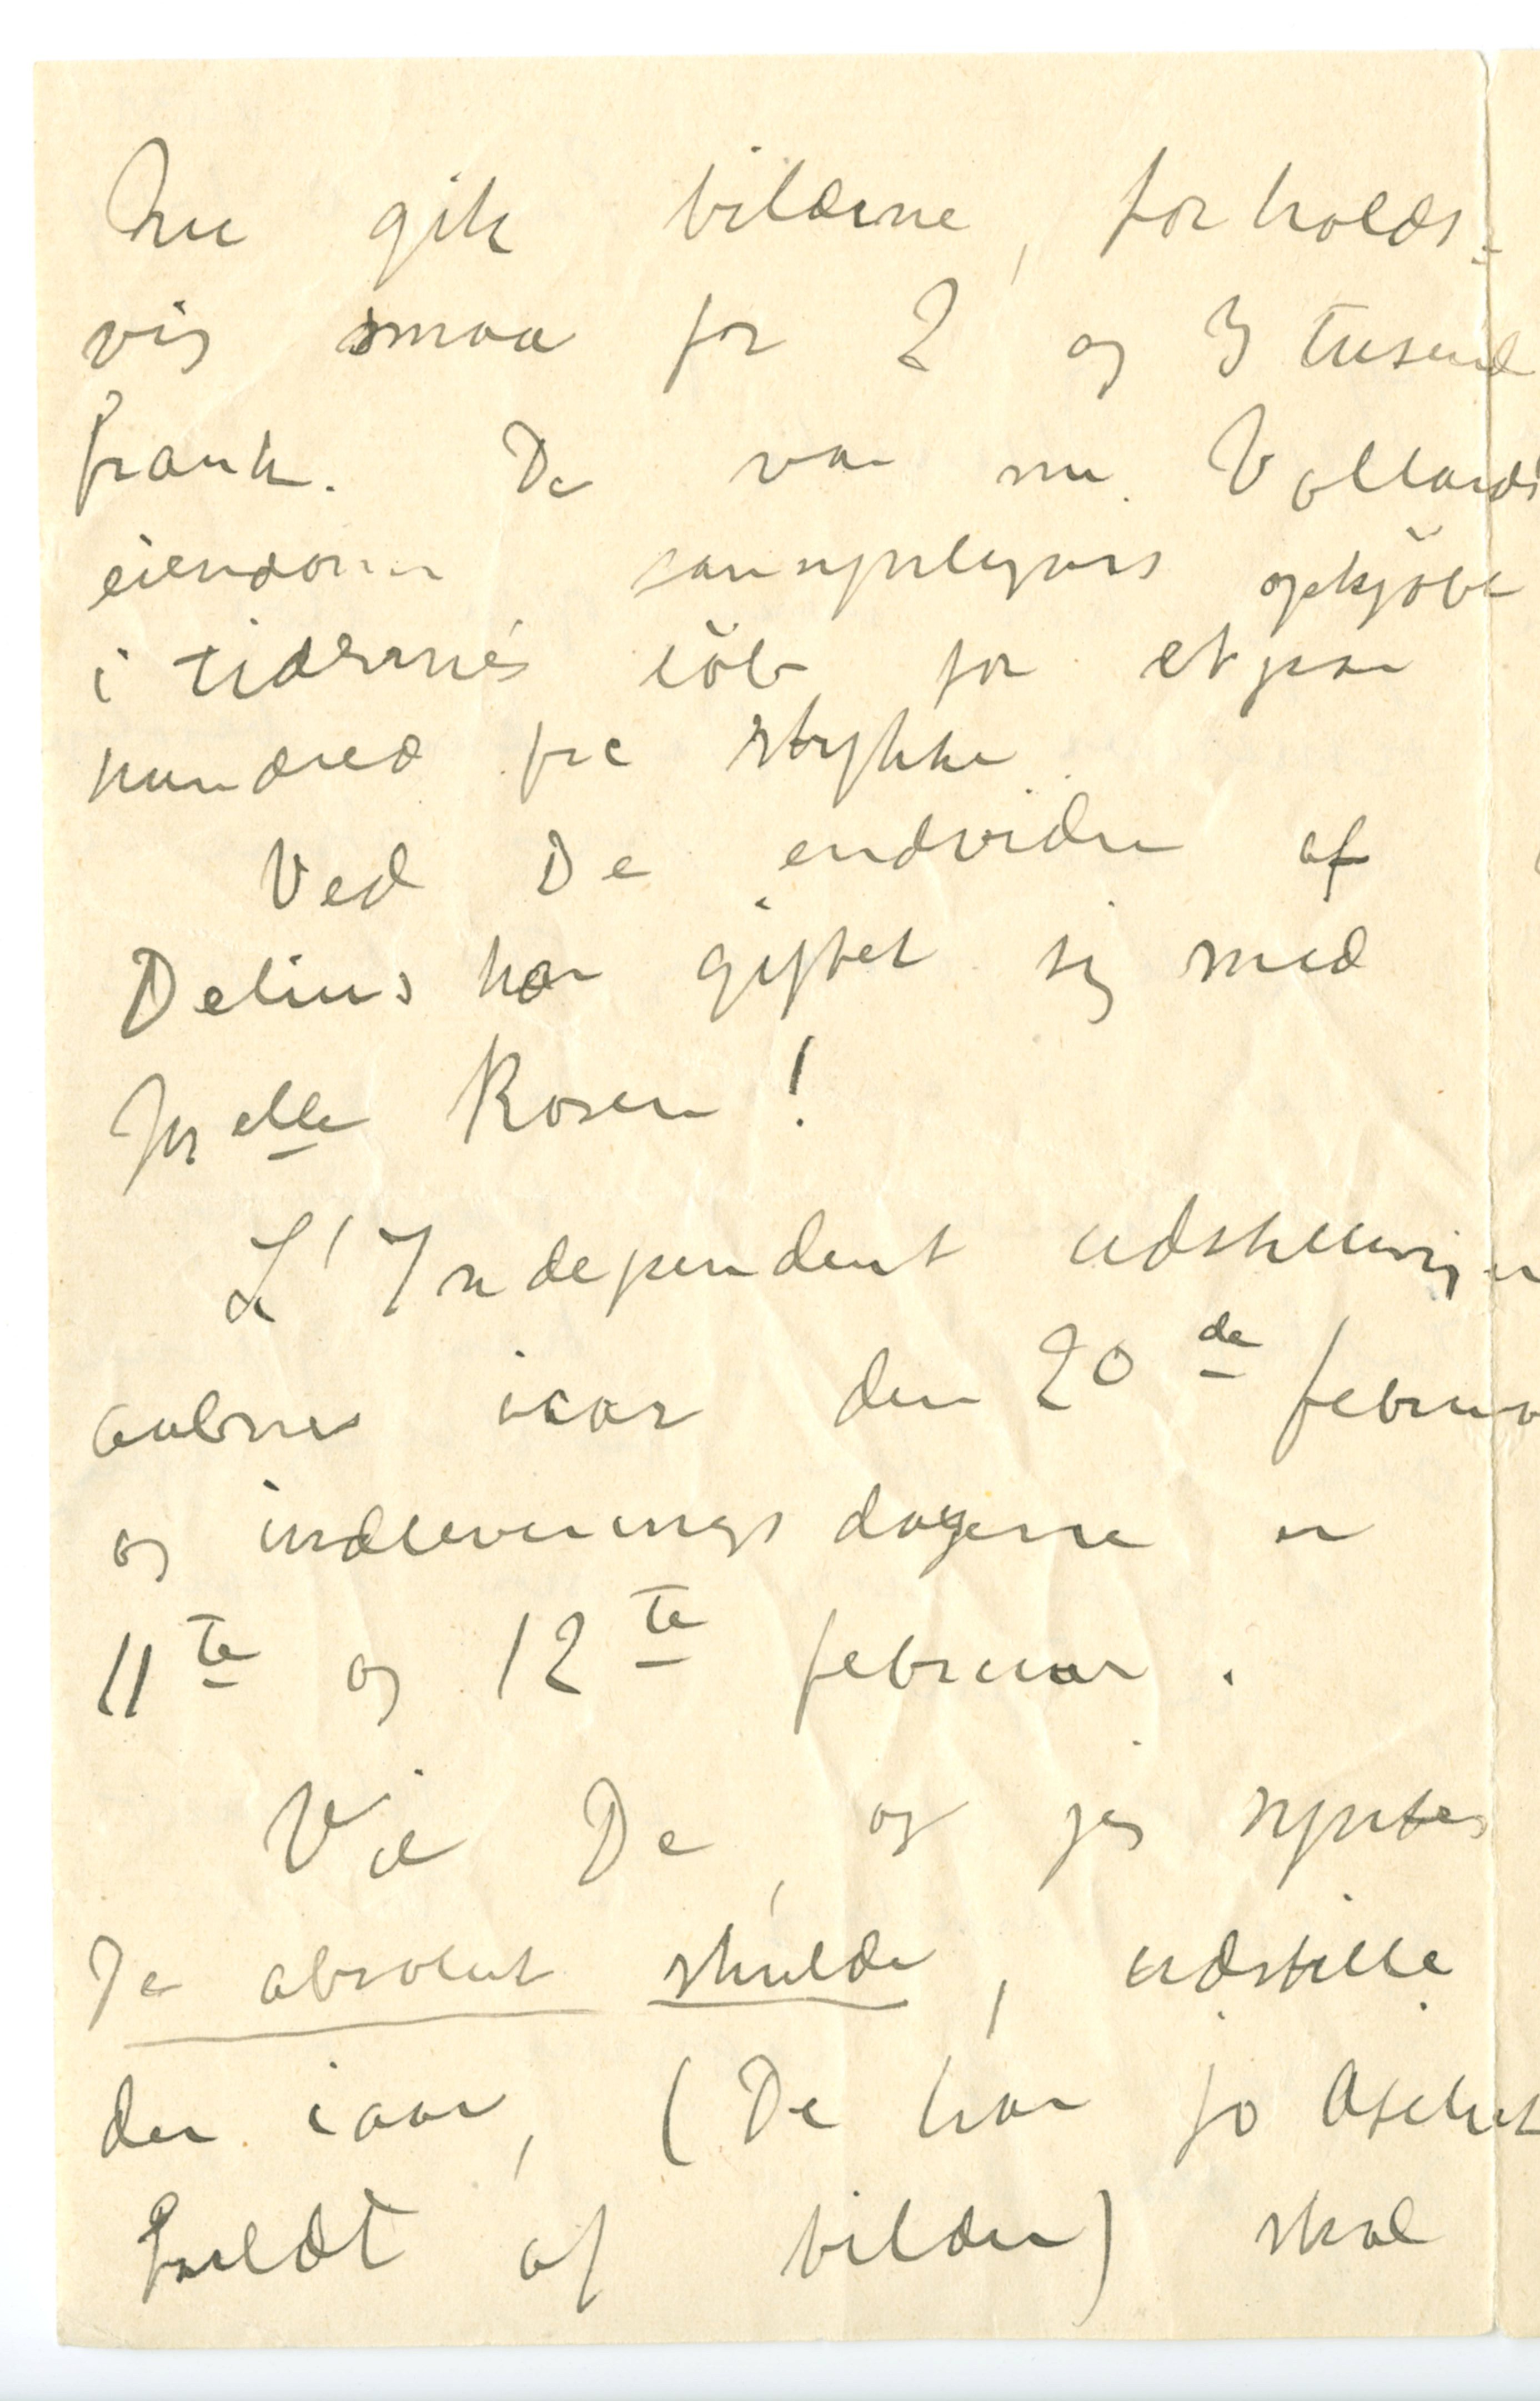 Nu gik bilderne, forholds-
vis smaa for 2 og 3 tusend
frank. De var nu Vollards
eiendom sansynligvis opkjöbt
i tidernes löb for et par
hundred frc stykke.
Ved De endvidere af
Delius har giftet sig med
Jelle Rosen!
L'Independent udstillingen
aabnes iaar den 20de februa
og indleverings dagene er
11te og 12te februar.
Vil De, og jeg syntes
De absolut skulde, udstille
der iaar, (De har jo
fuldt af bilder) skal